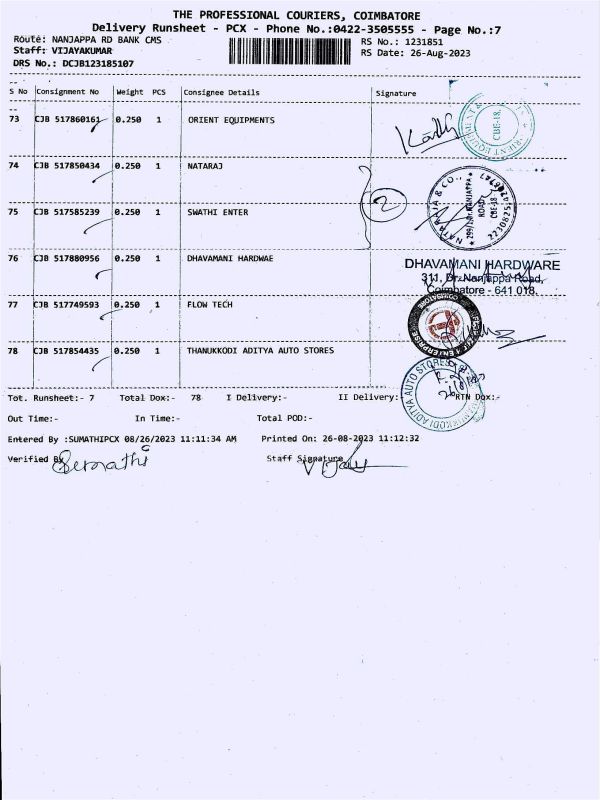 THE PROFESSIONAL COURIERS, COIMBATORE
Delivery Runsheet - PCX - Phone No.:0422-3505555 - Page No.:7
Route: NANJAPPA RD BANK CMS
RS No.: 1231851
Staff: VIJAYAKUMAR
RS Date: 26-Aug-2023
DRS No.: DCJB123185107
S No Consignment No Weight PCS Consignee Details Signature
73 CJB 517860161 0.250 1 ORIENT EQUIPMENTS
CBE-18.
74 CJB 517850434 0.250 1 NATARAJ
2
NATARAJA & CO.,
299/1, Dr. NANJAPPA
ROAD
CBE-18
75 CJB 517585239 0.250 1 SWATHI ENTER
76 CJB 517880956 0.250 1 DHAVAMANI HARDWAE
DHAVAMANI HARDWARE
311, Dr. Nanjappa Road,
Coimbatore - 641 018.
77 CJB 517749593 0.250 1 FLOW TECH
COIMBATORE
78 CJB 517854435 0.250 1 THANUKKODI ADITYA AUTO STORES
THANUKKODI ADITYA AUTO STORES
Tot. Runsheet:- 7 Total Dox:- 78 I Delivery:- II Delivery:- RTN Dox:-
Out Time:- In Time:- Total POD:-
Entered By :SUMATHIPCX 08/26/2023 11:11:34 AM Printed On: 26-08-2023 11:12:32
Verified By Sumathi
Staff Signature